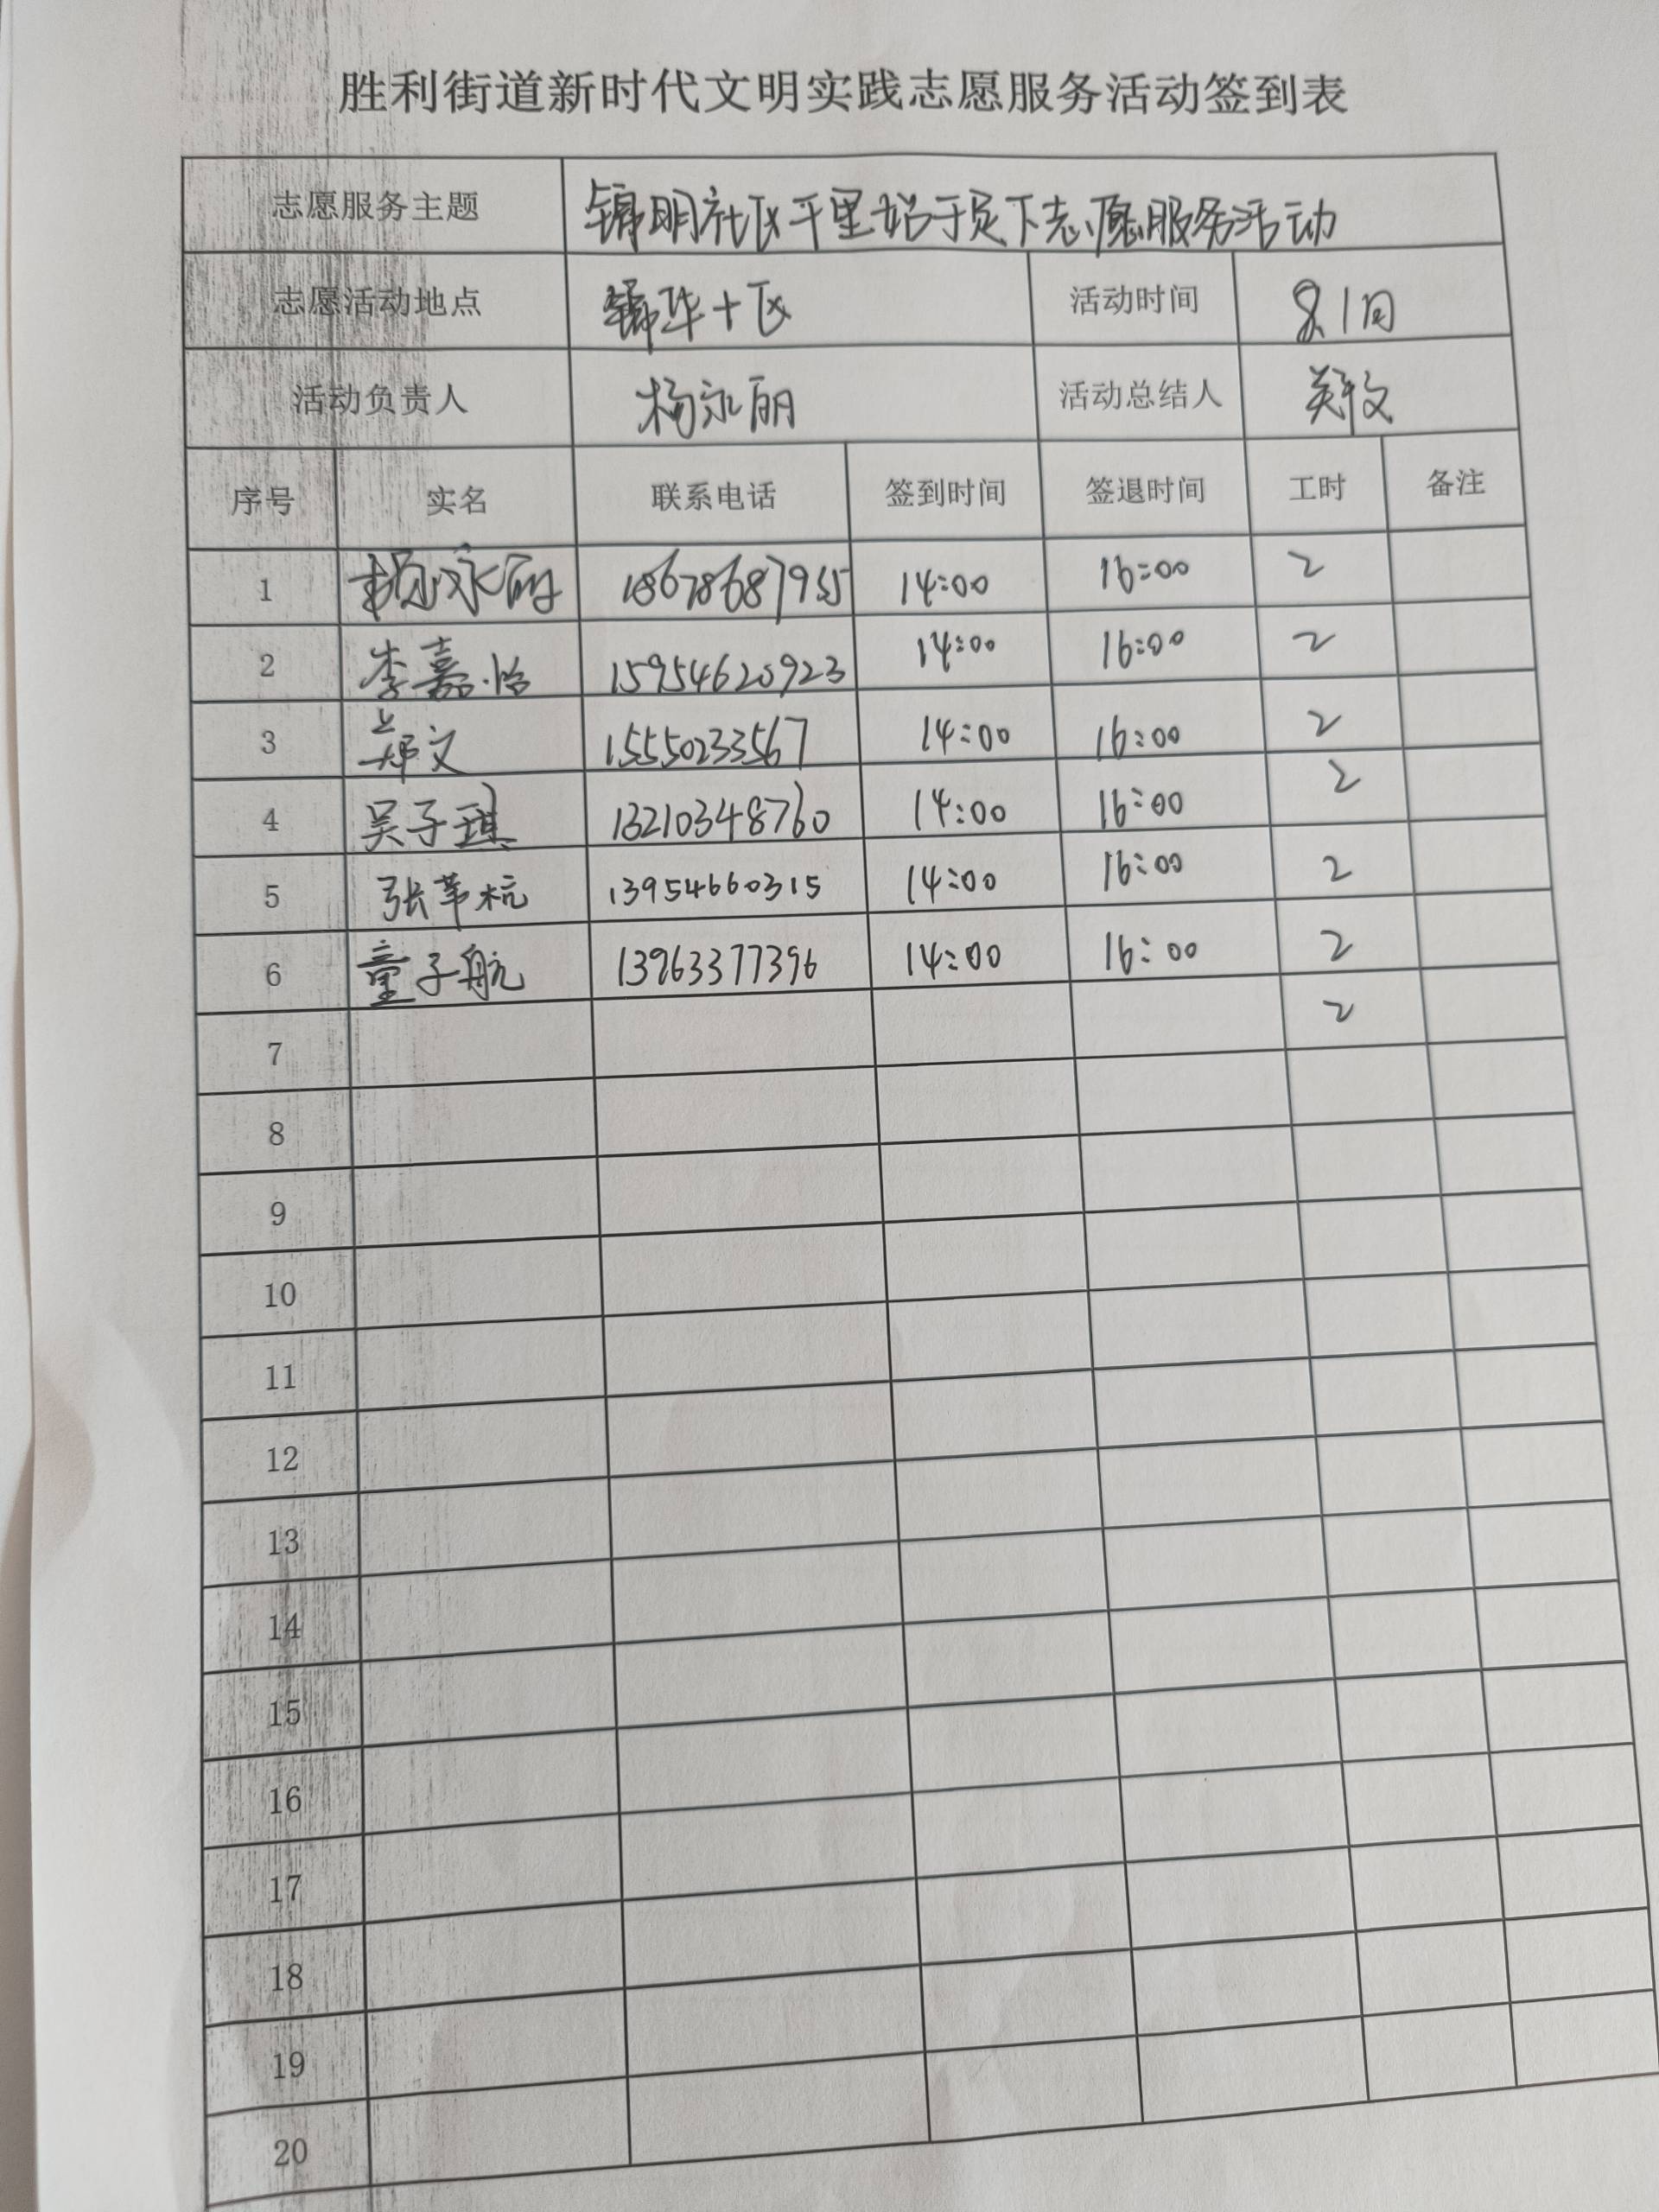 胜利街道新时代文明实践志愿服务活动签到表
志愿服务主题 锦明社区千里始于足下志愿服务活动
志愿活动地点 锦华十区 活动时间
活动负责人 杨永丽 活动总结人 郑文
序号 实名 联系电话 签到时间 签退时间 工时 备注
1 杨永丽 14:00 16:00 2
2 李嘉怡 15954620923 14:00 16:00 2
3 郑文 15550233567 14:00 16:00 2
4 吴子琪 13210348760 14:00 16:00 2
5 张苇杭 13954660315 14:00 16:00 2
6 童子航 13963377396 14:00 16:00 2
7 2
8
9
10
11
12
13
14
15
16
17
18
19
20